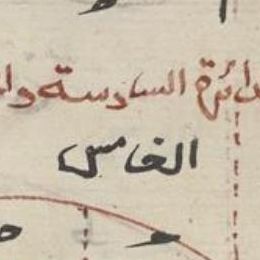 دائرة السادسة وا
الخامس